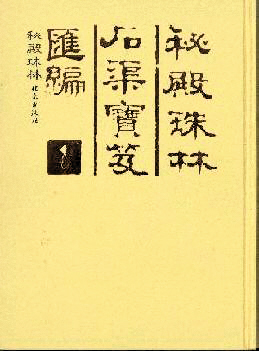 秘殿珠林
石渠寶笈
匯編
1
秘殿珠林
北京出版社